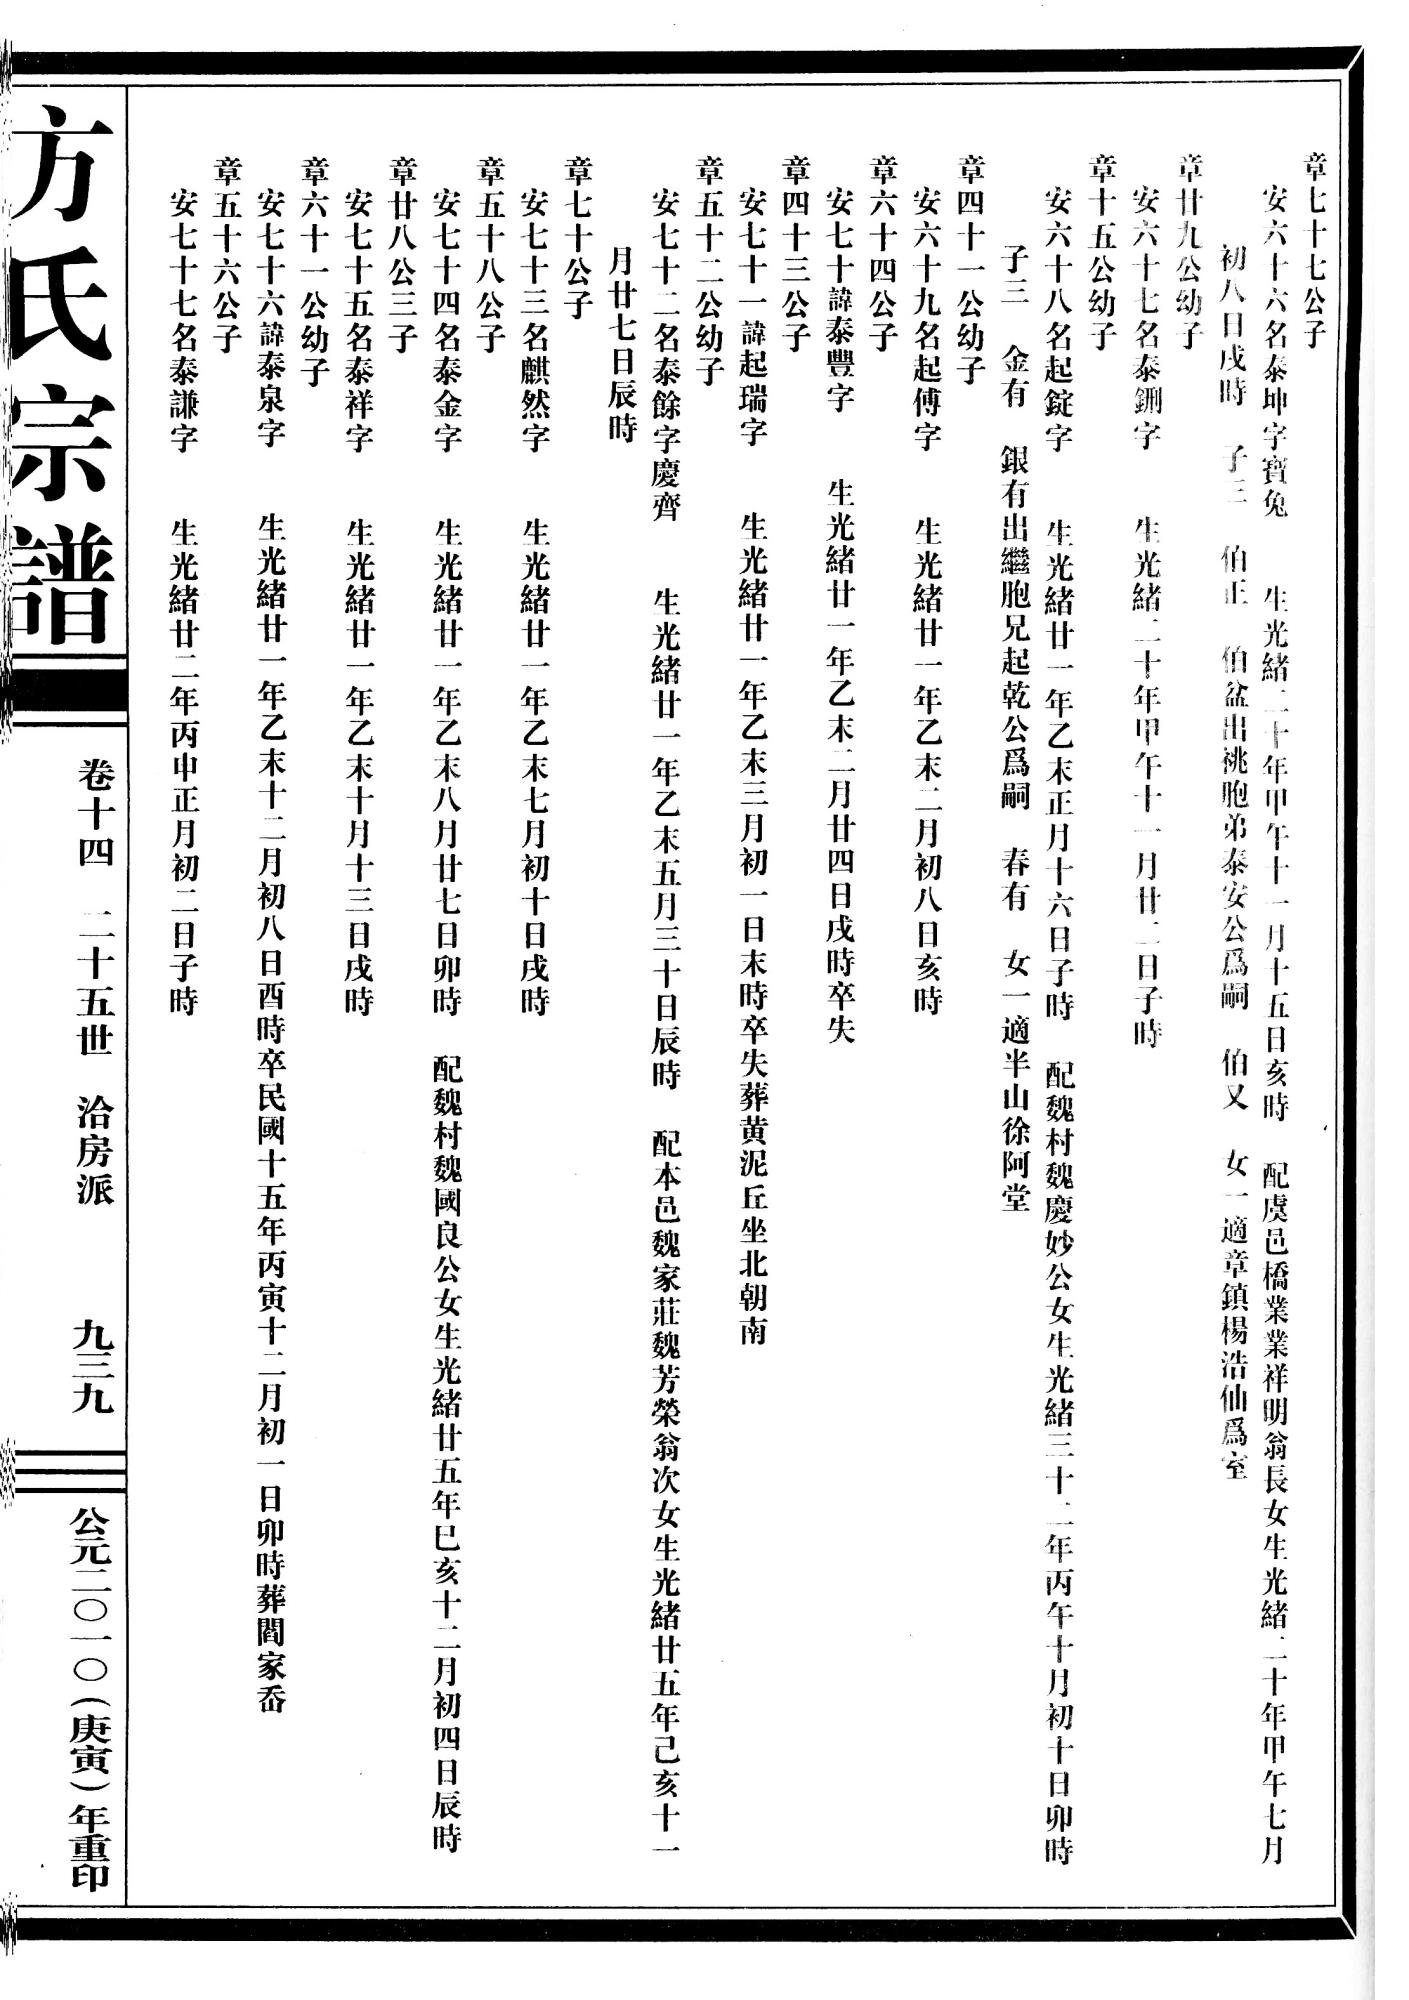 章七十七公子
安六十六名泰坤字寶兔　生光緒二十年甲午十一月十五日亥時　配虞邑橋業業祥明翁長女生光緒二十年甲午七月
初八日戌時　子三　伯正　伯盆出祧胞弟泰安公爲嗣　伯又　女一適章鎮楊浩仙爲室
章廿九公幼子
安六十七名泰鍘字　生光緒二十年甲午十一月廿二日子時
章十五公幼子
安六十八名起錠字　生光緒廿一年乙未正月十六日子時　配魏村魏慶妙公女生光緒三十二年丙午十月初十日卯時
子三　金有　銀有出繼胞兄起乾公爲嗣　春有　女一適半山徐阿堂
章四十一公幼子
安六十九名起傅字　生光緒廿一年乙末二月初八日亥時
章六十四公子
安七十諱泰豐字　生光緒廿一年乙末二月廿四日戌時卒失
章四十三公子
安七十一諱起瑞字　生光緒廿一年乙末三月初一日末時卒失葬黄泥丘坐北朝南
章五十二公幼子
安七十二名泰餘字慶齊　生光緒廿一年乙末五月三十日辰時　配本邑魏家莊魏芳榮翁次女生光緒廿五年己亥十一
月廿七日辰時
章七十公子
安七十三名麒然字　生光緒廿一年乙末七月初十日戌時
章五十八公子
安七十四名泰金字　生光緒廿一年乙末八月廿七日卯時　配魏村魏國良公女生光緒廿五年巳亥十二月初四日辰時
章廿八公三子
安七十五名泰祥字　生光緒廿一年乙末十月十三日戌時
章六十一公幼子
安七十六諱泰泉字　生光緒廿一年乙末十二月初八日酉時卒民國十五年丙寅十二月初一日卯時葬閻家岙
章五十六公子
安七十七名泰謙字　生光緒廿二年丙申正月初二日子時
方氏宗譜
卷十四　二十五世　洽房派　九三九
公元二〇一〇（庚寅）年重印